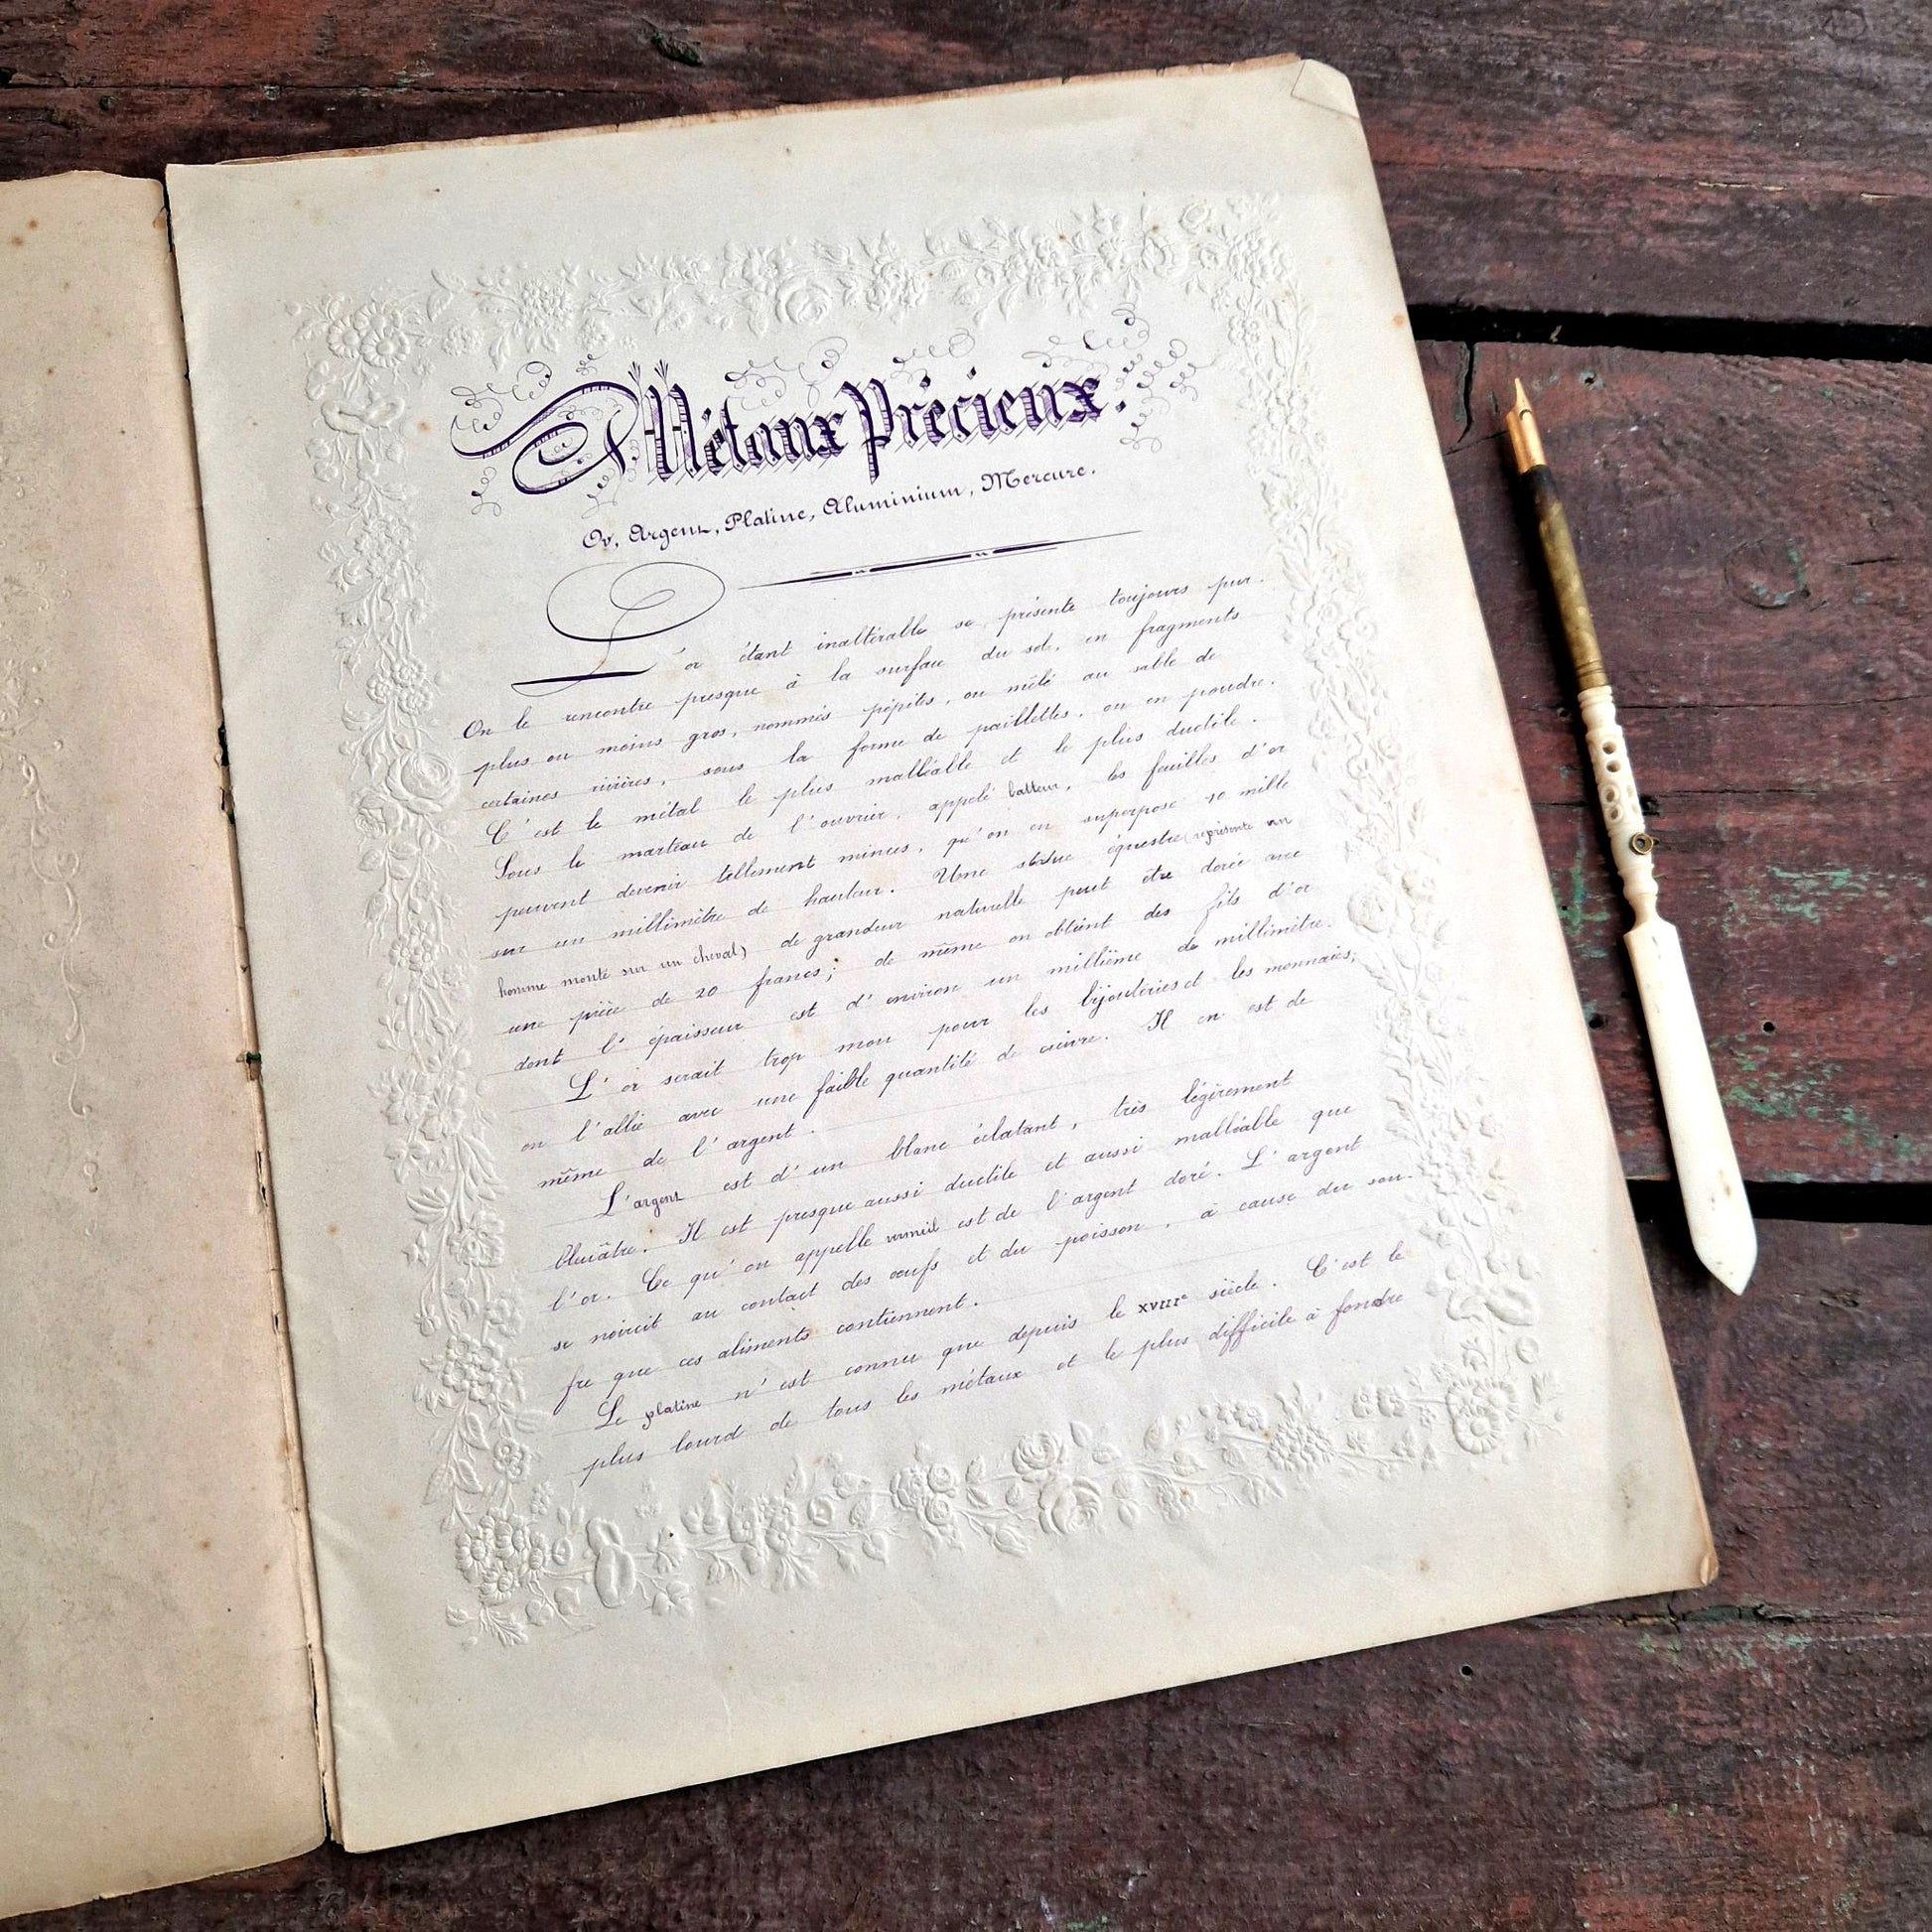 Métaux Précieux.
Or, Argent, Platine, Aluminium, Mercure.
L'or étant inaltérable se présente toujours pur.
On le rencontre presque à la surface du sol, en fragments
plus ou moins gros, nommés pépites, ou mêlé au sable de
certaines rivières, sous la forme de paillettes, ou en poudre.
C'est le métal le plus malléable et le plus ductile.
Sous le marteau de l'ouvrier, appelé batteur, les feuilles d'or
peuvent devenir tellement minces, qu'on en superpose 10 mille
sur un millimètre de hauteur. Une statue équestre (représente un
homme monté sur un cheval) de grandeur naturelle peut être dorée avec
une pièce de 20 francs; de même on obtient des fils d'or
dont l'épaisseur est d'environ un millième de millimètre.
L'or serait trop mou pour les bijouteries et les monnaies;
on l'allie avec une faible quantité de cuivre. Il en est de
même de l'argent.
L'argent est d'un blanc éclatant, très légèrement
bleuâtre. Il est presque aussi ductile et aussi malléable que
l'or. Ce qu'on appelle vermeil est de l'argent doré. L'argent
se noircit au contact des œufs et du poisson, à cause du sou-
fre que ces aliments contiennent.
Le platine n'est connu que depuis le XVIIIe siècle. C'est le
plus lourd de tous les métaux et le plus difficile à fondre